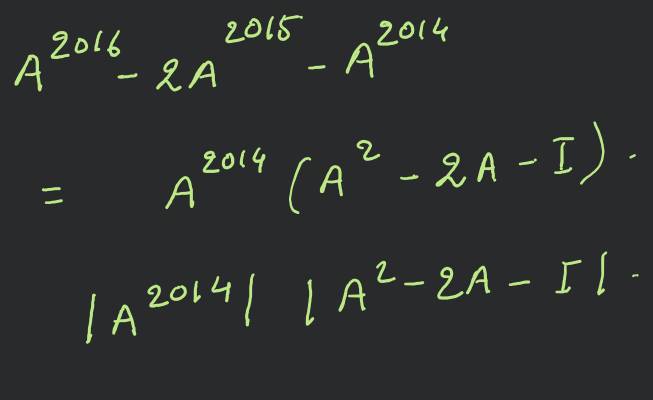 A^2016 - 2A^2015 - A^2014
= A^2014 (A^2 - 2A - I).
|A^2014| |A^2 - 2A - I|.